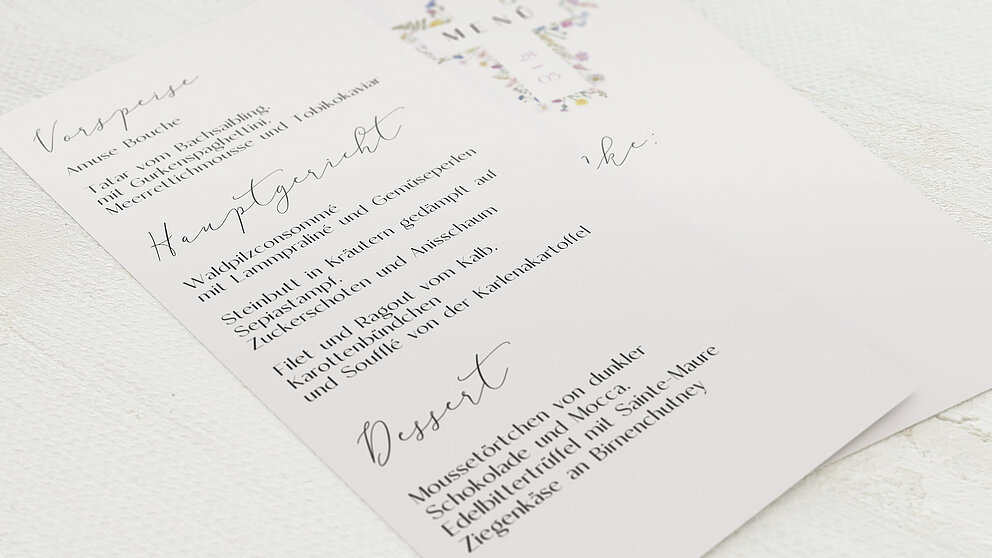 Vorspeise
Amuse Bouche
Tatar vom Bachsaibling,
mit Gurkenspaghettini,
Meerrettichmousse und Tobikokaviar
Hauptgericht
Waldpilzconsommé
mit Lammpraliné und Gemüseperlen
Steinbutt in Kräutern gedämpft auf
Sepiastampf,
Zuckerschoten und Anisschaum
Filet und Ragout vom Kalb,
Karottenbündchen
und Soufflé von der Karlenakartoffel
Dessert
Moussetörtchen von dunkler
Schokolade und Mocca,
Edelbittertrüffel mit Sainte-Maure
Ziegenkäse an Birnenchutney
MENÜ
28
05